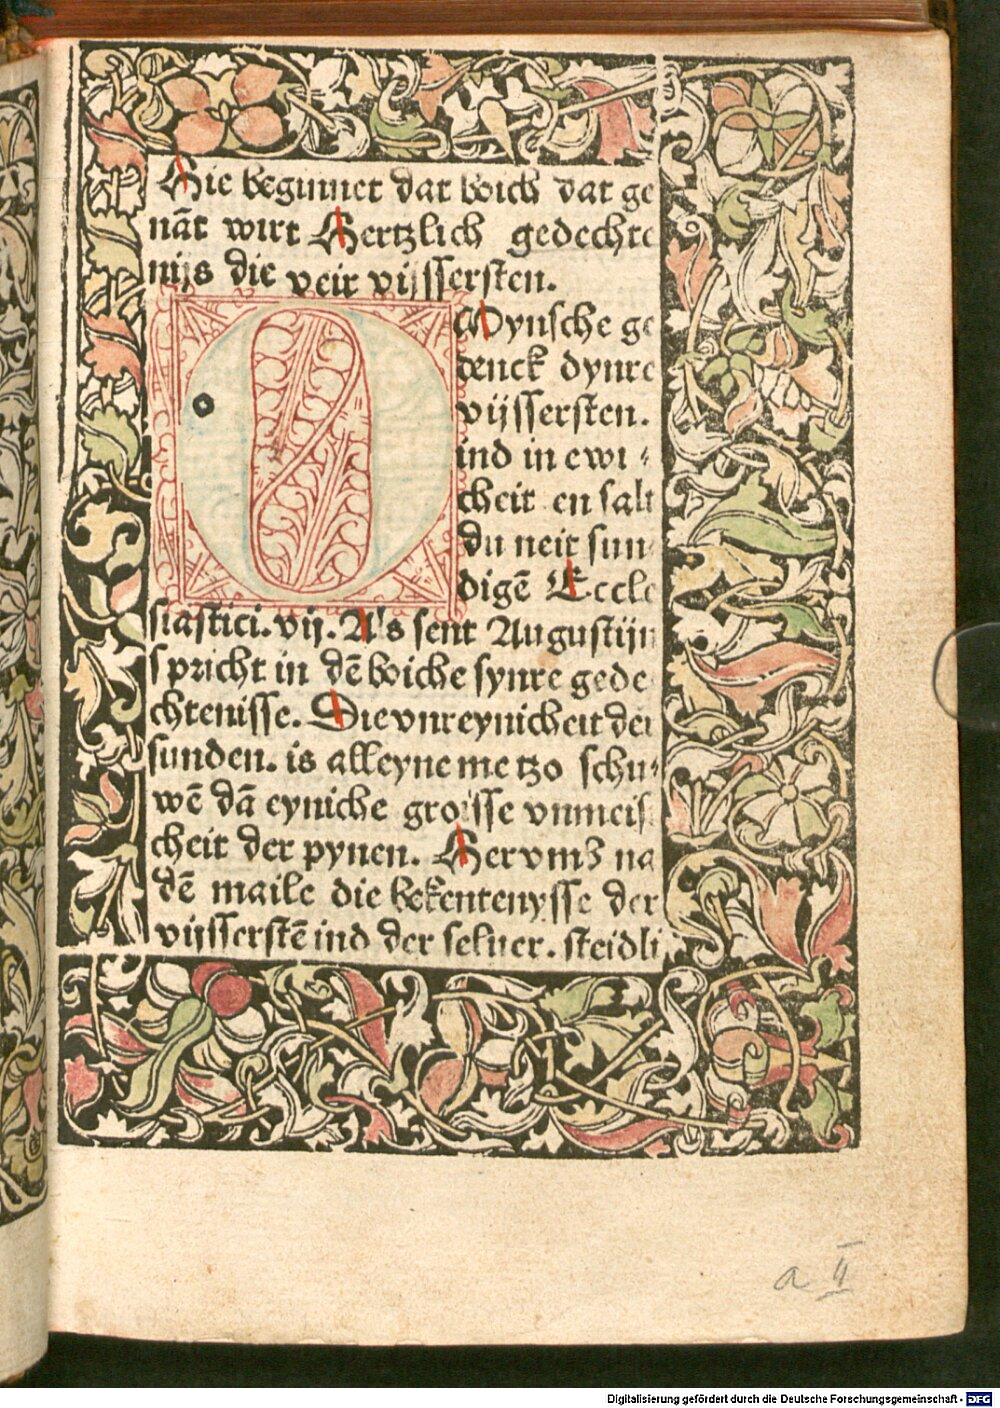 Hie beginnet dat boich dat ge
nãt wirt Hertzlich gedechte
nijs die veir vijssersten.
O Mynsche ge
denck dynre
vijssersten.
ind in ewi
cheit en salt
du neit sun
digẽ Eccle
siastici. vij. Als sent Augustijn
spricht in dẽ boiche synre gede
chtenisse. Die vnreynicheit der
sunden. is alleyne me tzo schu
wẽ dã eyniche groisse vnmeis
cheit der pynen. Hervmʒ na
dẽ maile die bekentenysse der
vijsserstẽ ind der seluer. steidli
a II
Digitalisierung gefördert durch die Deutsche Forschungsgemeinschaft - DFG